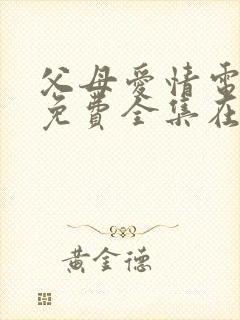 父母愛情電
免費全集在
黃金德